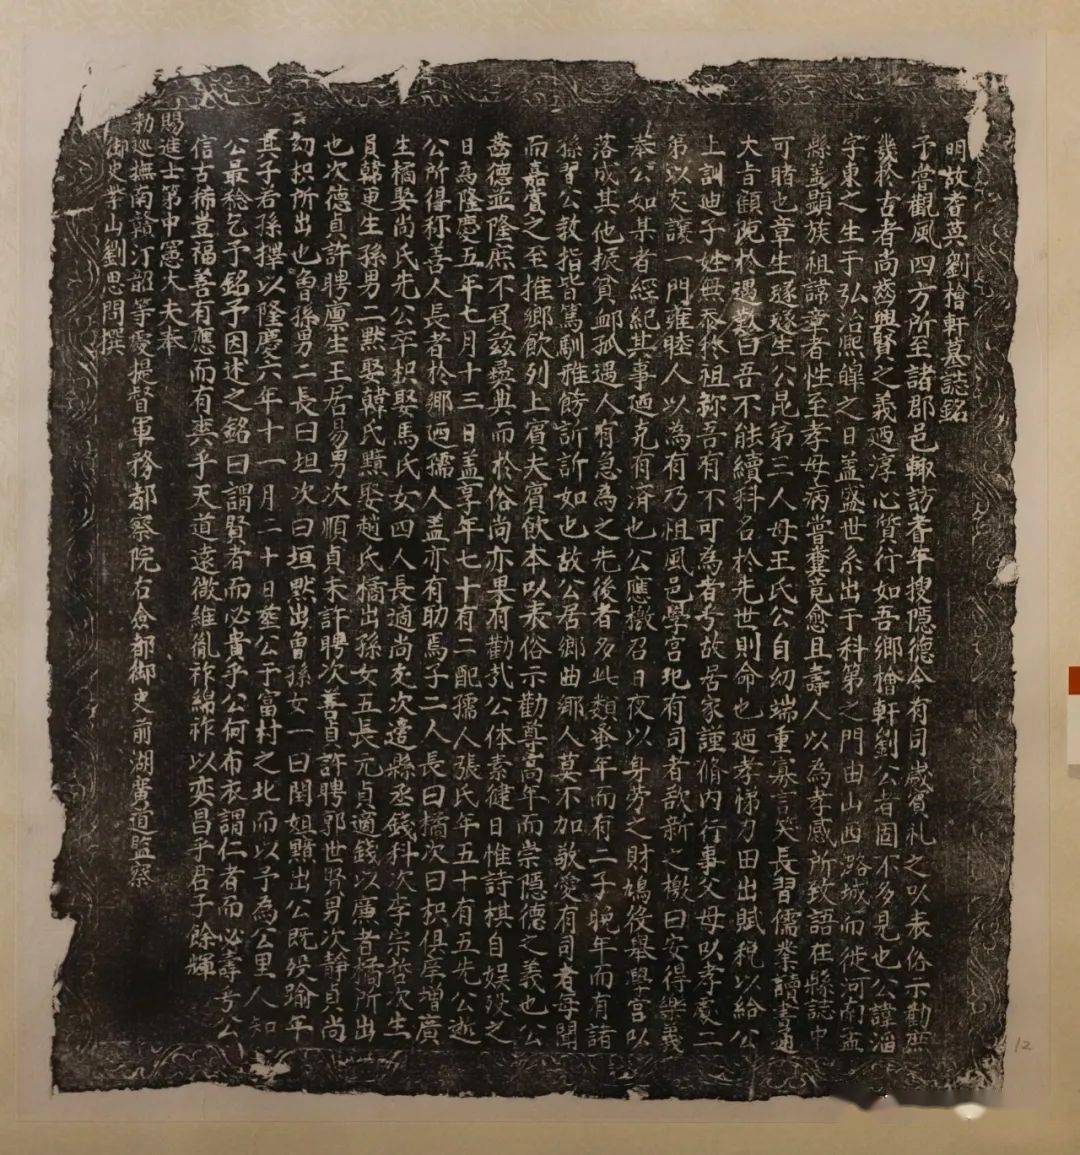 明故耆英劉檜軒墓誌銘
予嘗觀風四方所至諸郡邑輙訪耆年搜隱德令有司歲賓礼之以表俗示勸庶
幾於古者尚齒興賢之義迺淳心質行如吾鄉檜軒劉公者固不多見也公諱淄
字東之生于弘治熙皥之日蓋盛世系出于科第之門由山西路城而徙河南孟
縣蓋顯族祖諱章者性至孝母病嘗糞竟愈且壽人以為孝感所致語在縣誌中
可睹也章生琢琢生公昆第三人母王氏公自幼端重寡言笑長習儒業讀書通
大旨顧況於遇數曰吾不能續科名於先世則命也廼孝悌力田出賦稅以給公
上訓迪子姓無忝於祖祢吾有不可為者乎故居家謹脩內行事父母以孝處二
第以友讓一門雍睦人以為有乃祖風邑學宮圮有司者欲新之檄曰安得樂義
奉公如某者經紀其事廼克有濟也公應檄召日夜以身劳之財鳩役舉學宮以
落成其他振貧衈孤過人有急為之先後者多此類蚤年而有二子晚年而有諸
孫習公教指皆篤馴雅飭訢訢如也故公居鄉曲鄉人莫不加敬愛有司者每聞
而嘉賓之至推鄉飲列上賓夫賓飲本以表俗示勸尊高年而崇隱德之義也公
耆德並隆庶不負玆彝典而於俗尚亦果有勸哉公体素健日惟詩棋自娱歿之
日為隆慶五年七月十三日蓋享年七十有二配孺人張氏年五十有五先公逝
公所得称善人長者於鄉迺孺人蓋亦有助焉子二人長曰橘次曰枳俱庠增廣
生橘娶尚氏先公卒枳娶馬氏女四人長適尚友次適縣丞錢科次李宗哲次生
員韓更生孫男二黙娶韓氏黰娶趙氏橘出孫女五長元貞適錢以廉者橘所出
也次德貞許聘廪生王居易男次順貞未許聘次善貞許聘郭世賢男次静貞尚
幻枳所出也曾孫男二長曰坦次曰垣黙出曾孫女一曰閏姐黰出公既歿踰年
其子若孫擇以隆慶六年十一月二十日葬公于富村之北而以予為公里人知
公最稔乞予銘予因述之銘曰謂賢者而必貴乎公何布衣謂仁者而必壽乎公
信古稀豈福善有應而有爽乎天道遠微維胤祚綿祚以奕昌乎君子餘輝
賜進士第中憲大夫奉
勅巡撫南贛汀韶等處提督軍務都察院右僉都御史前湖廣道監察
御史茟山劉思問撰
12